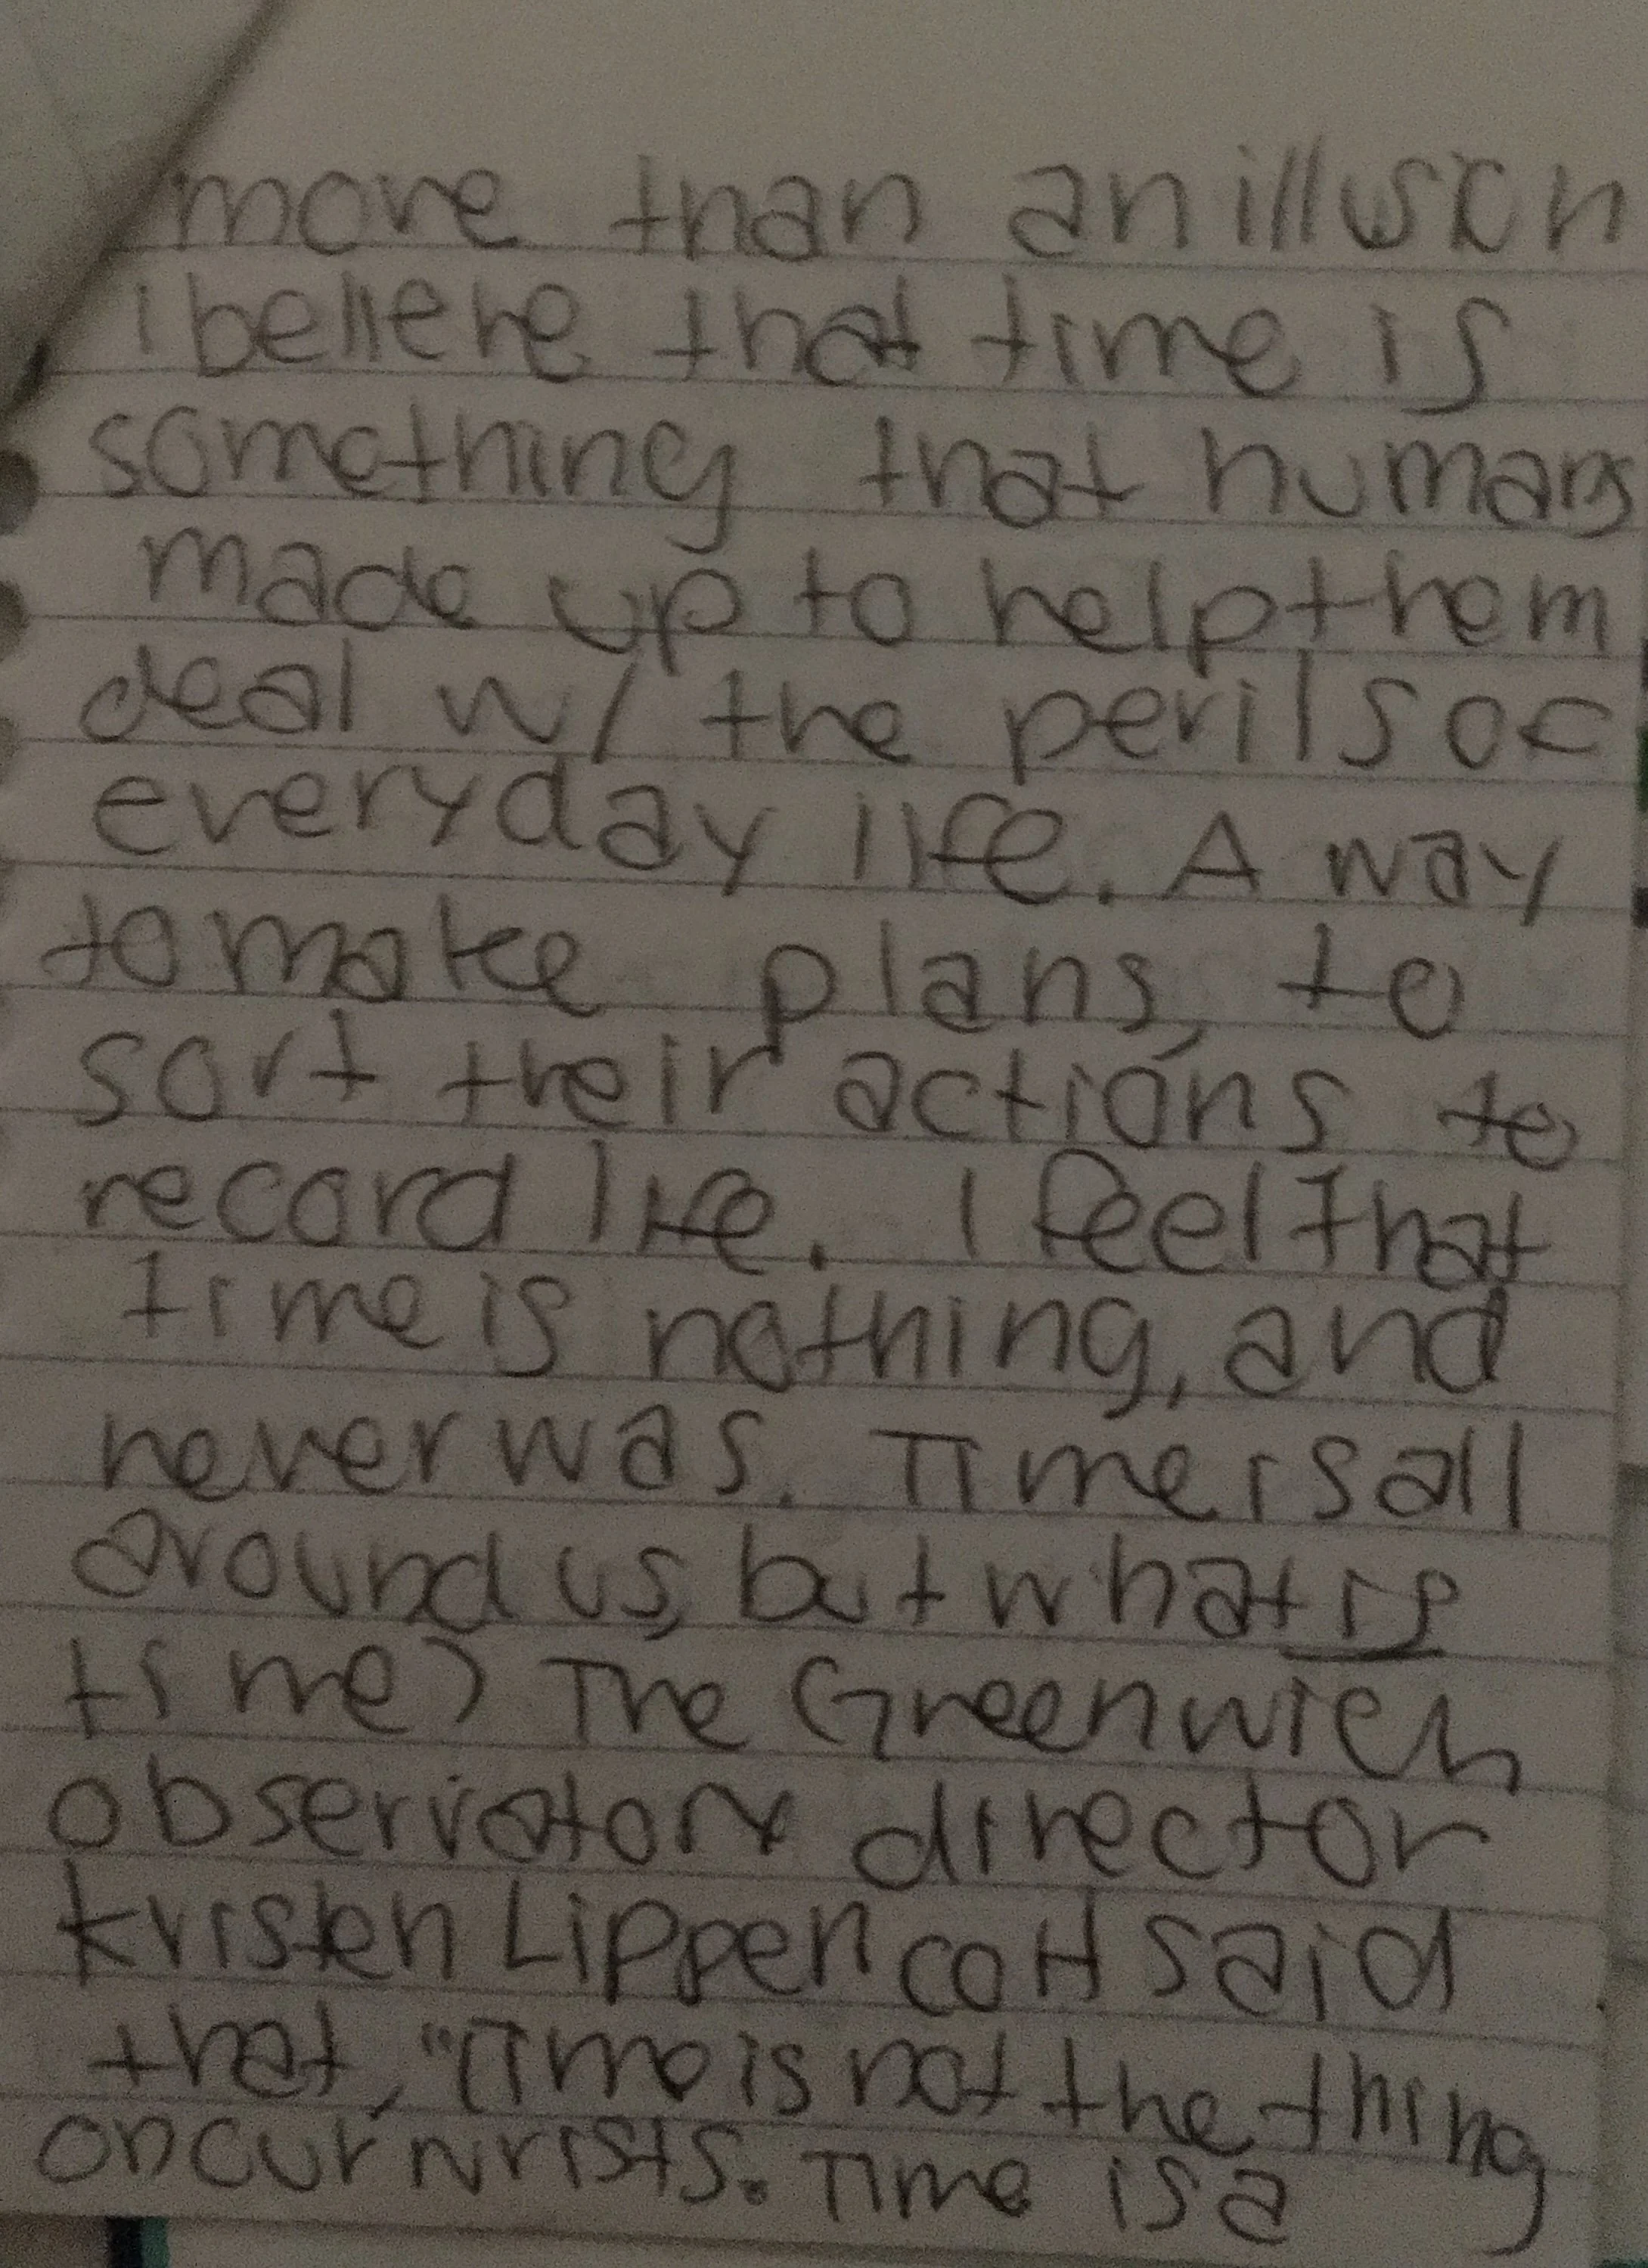 more than an illusion
i believe that time is
something that humans
made up to help them
deal w/ the perils of
everyday life. A way
to make plans, to
sort their actions, to
record life. I feel that
time is nothing, and
never was. Time is all
around us, but what is
time? The Greenwich
observatory director
Kristen Lippencott said
that, "Time is not the thing
on our wrists. Time is a